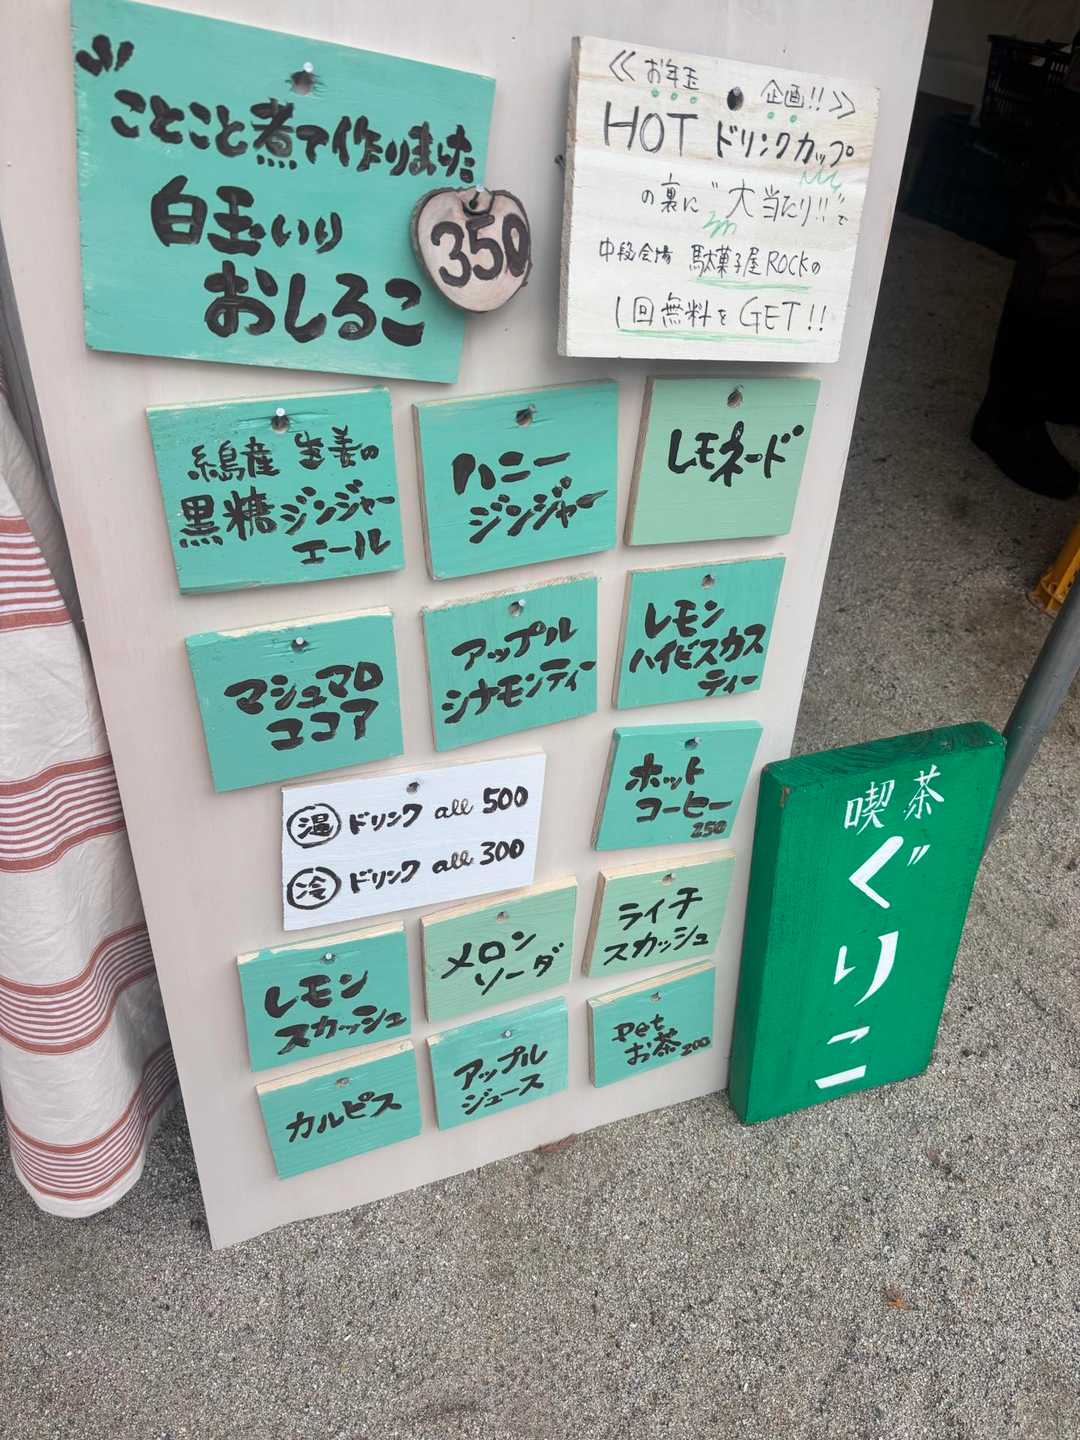 ことこと煮て作りました
白玉いり
おしるこ
350
≪お年玉 企画!!≫
HOT ドリンクカップ
の裏に"大当たり!!"で
中段会場 駄菓子屋ROCKの
1回無料をGET!!
糸島産 生姜の
黒糖ジンジャー
エール
ハニー
ジンジャー
レモネード
マシュマロ
ココア
アップル
シナモンティー
レモン
ハイビスカス
ティー
温 ドリンク all 500
冷 ドリンク all 300
ホット
コーヒー
250
レモン
スカッシュ
メロン
ソーダ
ライチ
スカッシュ
カルピス
アップル
ジュース
Pet
お茶 200
喫茶
ぐりこ